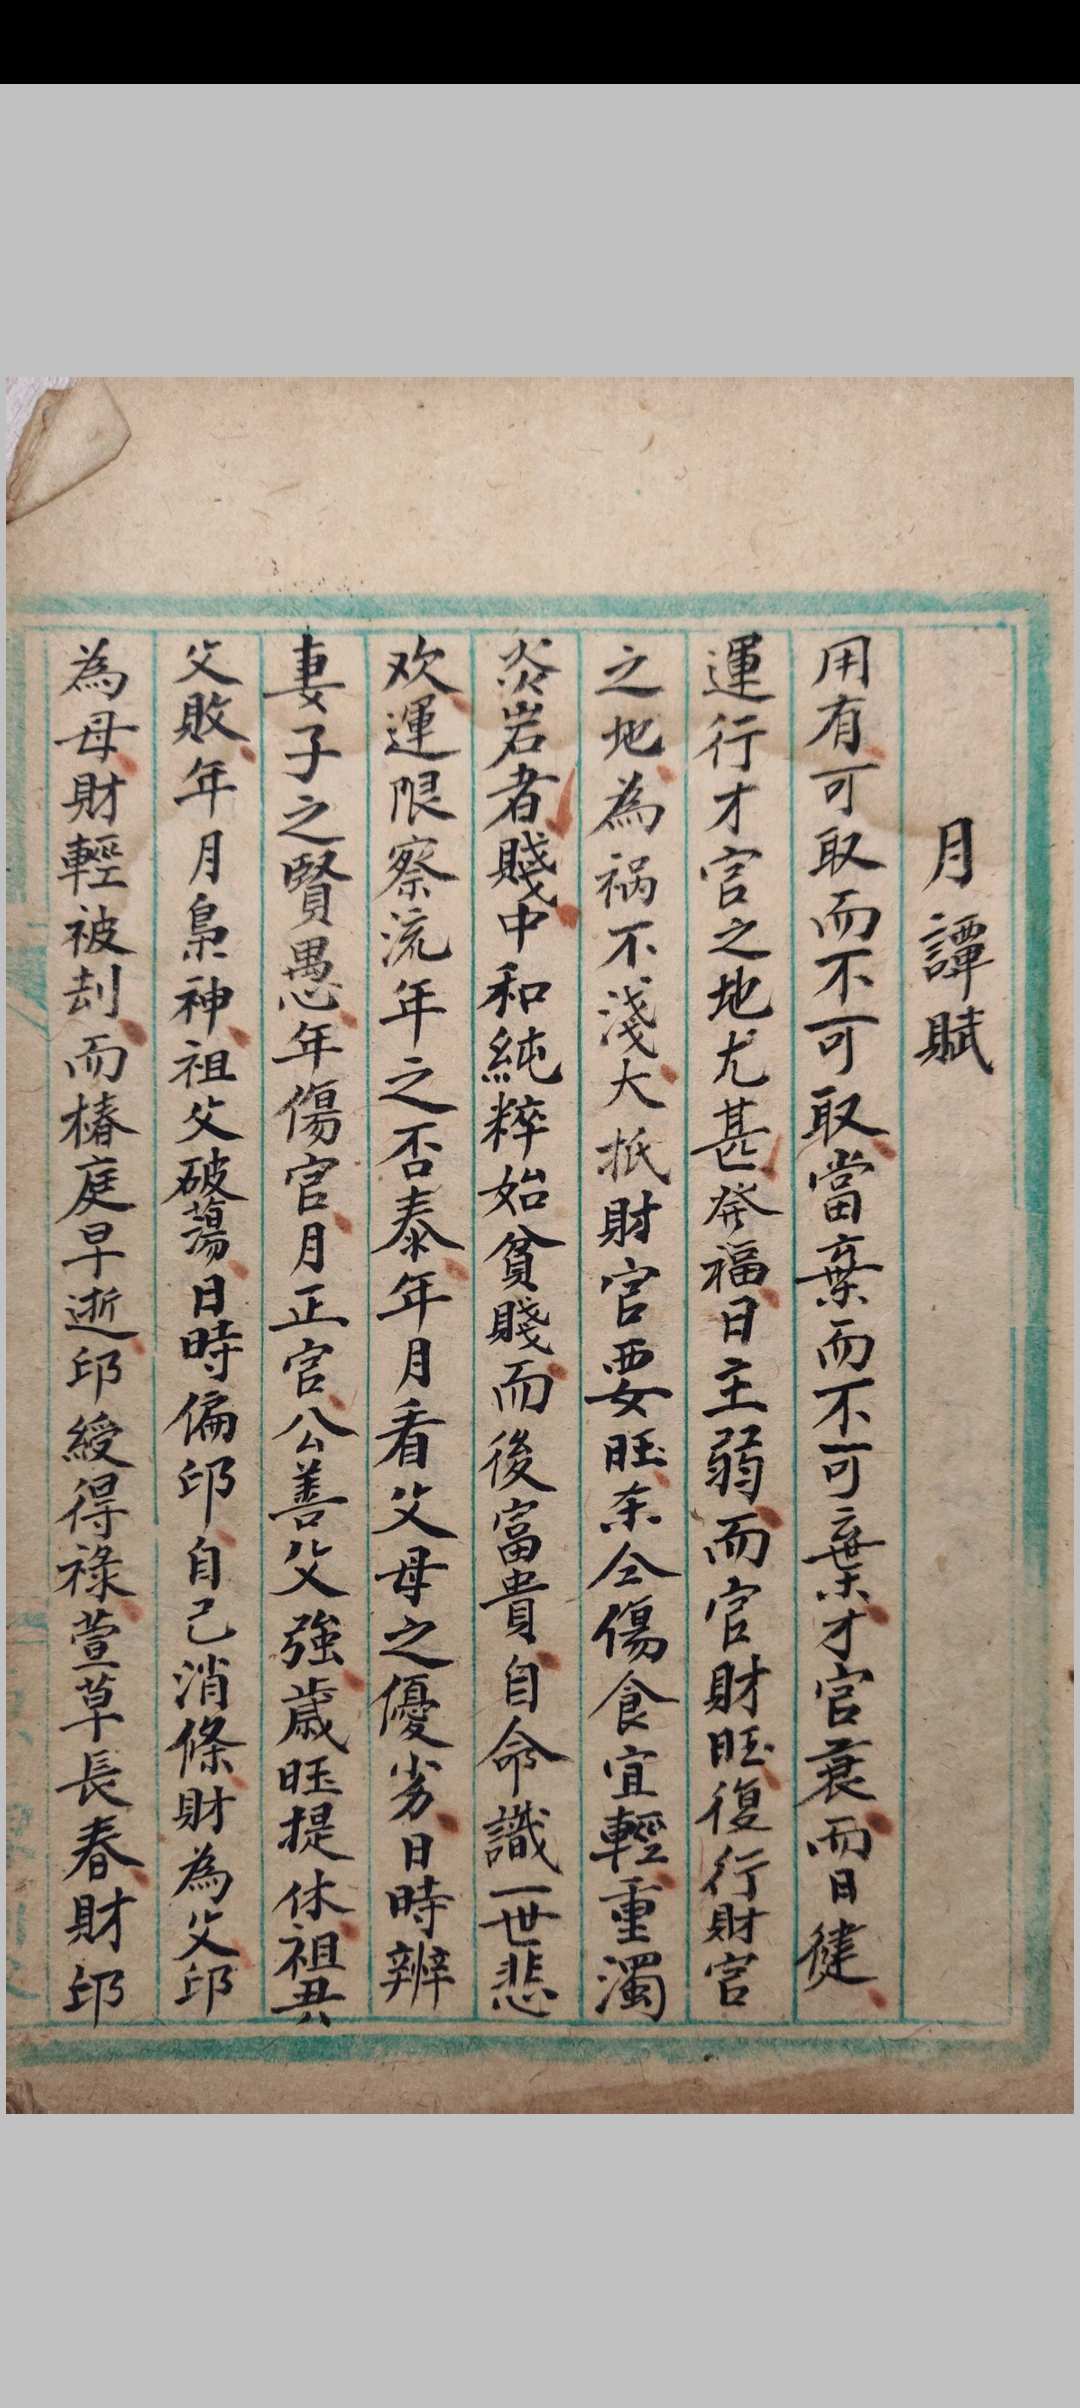 月譚賦
用有可取而不可取當棄而不可棄才官衰而日健
運行才官之地尤甚發福日主弱而官財旺復行財官
之地為祸不淺大抵財官要旺杀仝傷食宜輕重濁
炎岩者賤中和純粹始貧賤而後富貴自命識一世悲
欢運限察流年之否泰年月看父母之優劣日時辨
妻子之賢愚年傷官月正官公善父強歲旺提休祖興
父敗年月梟神祖父破蕩日時偏印自己消條財為父印
為母財輕被刦而椿庭早逝印綬得祿萱草長春財印